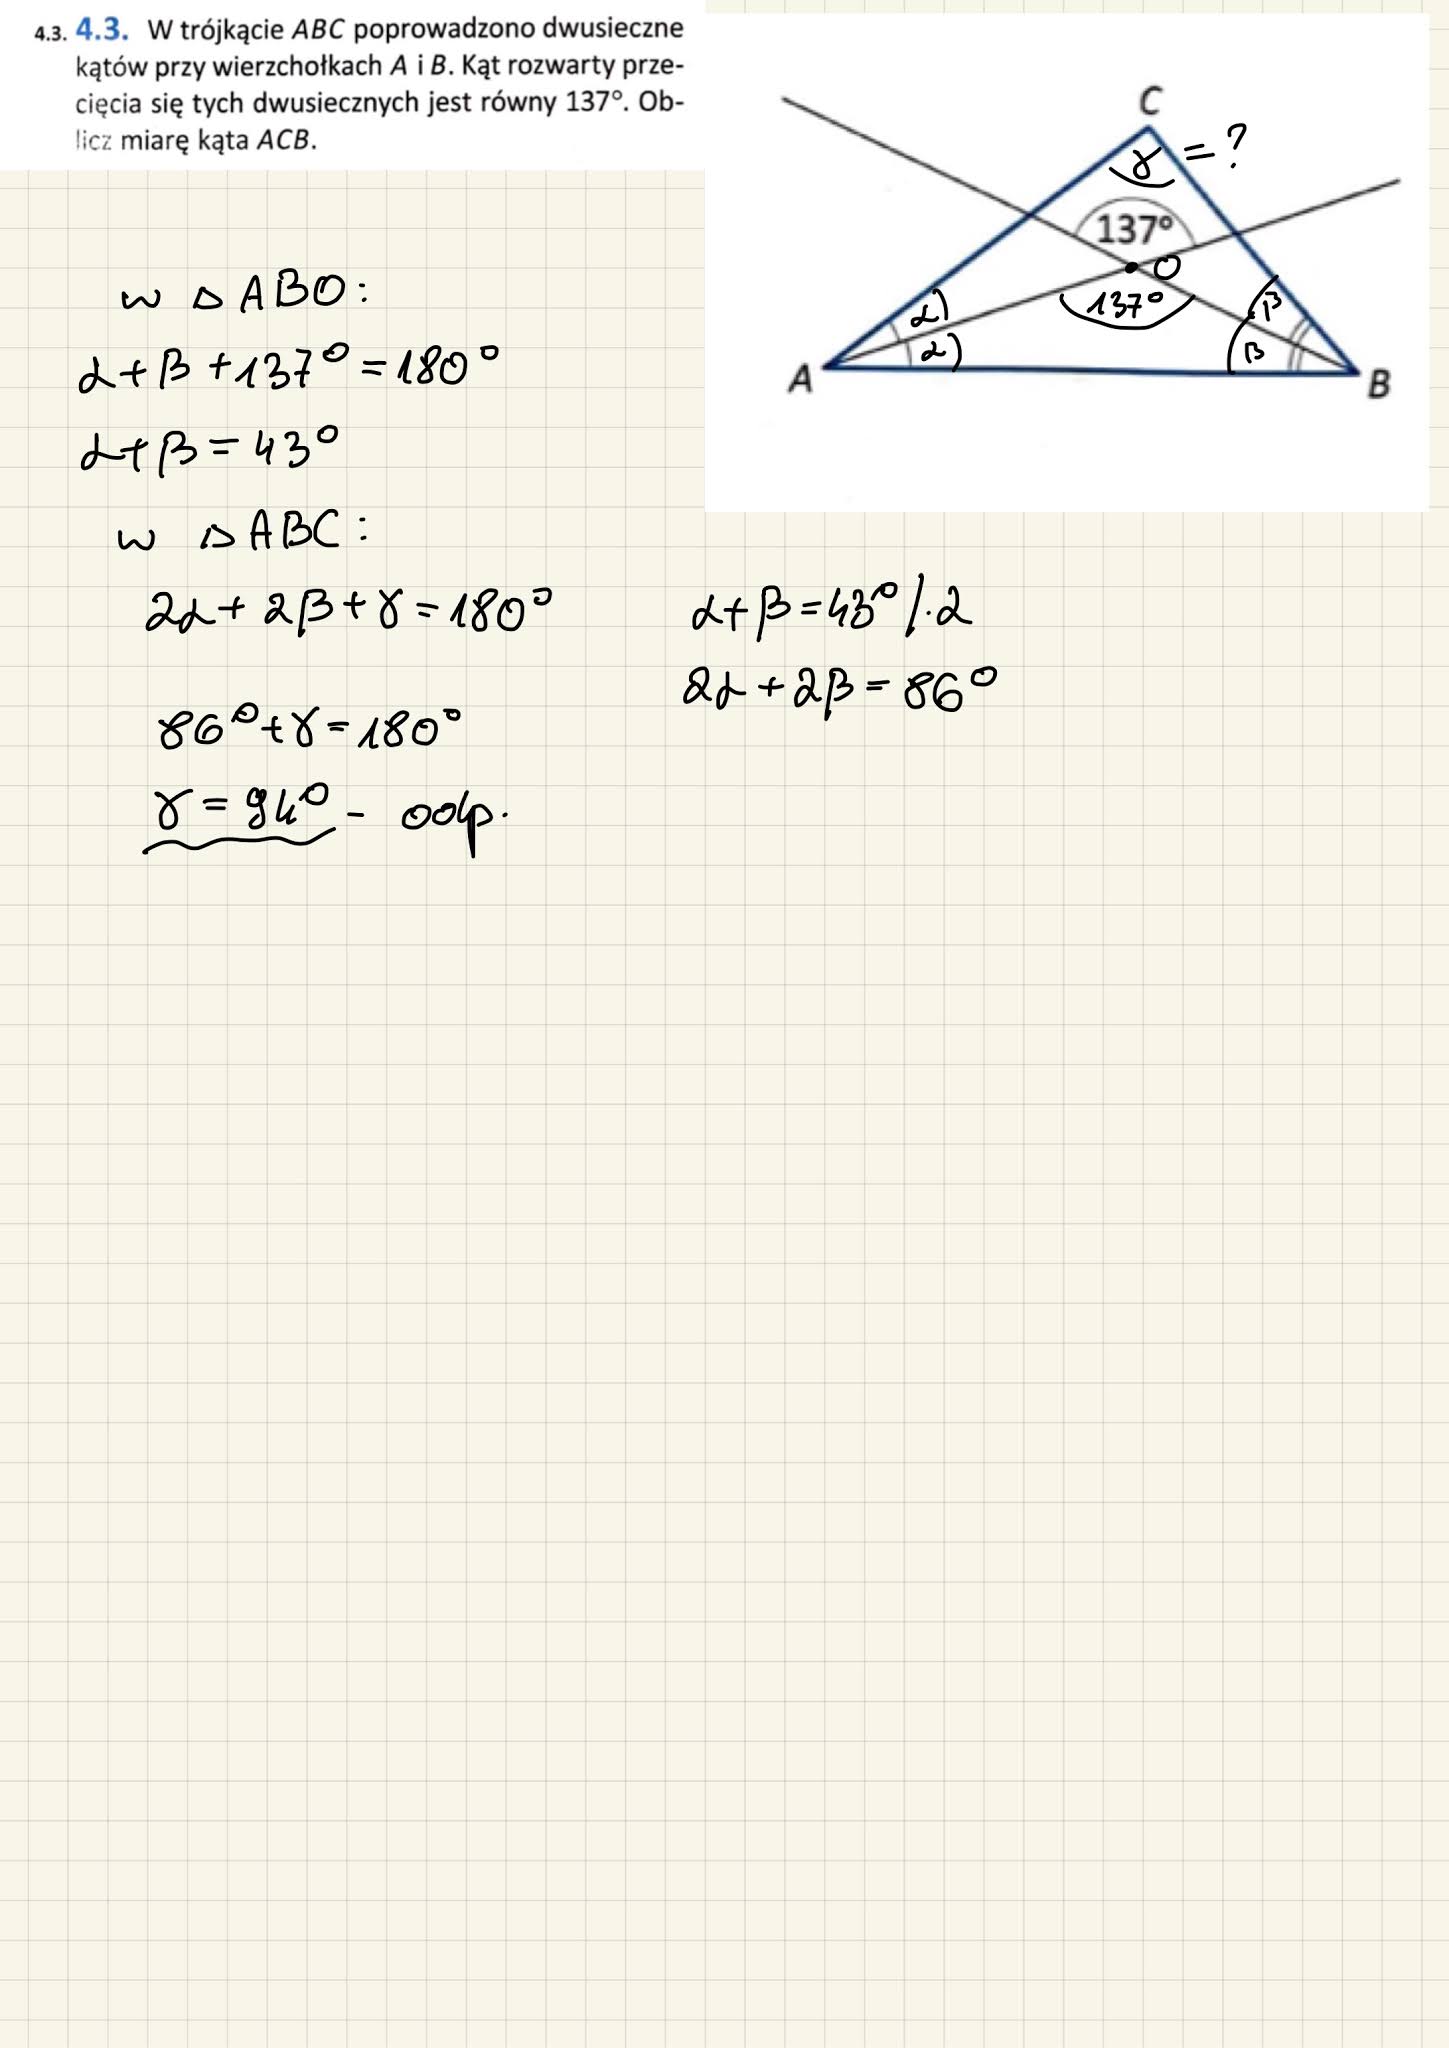 4.3. 4.3. W trójkącie ABC poprowadzono dwusieczne
kątów przy wierzchołkach A i B. Kąt rozwarty prze-
cięcia się tych dwusiecznych jest równy 137°. Ob-
licz miarę kąta ACB.
C
γ = ?
137°
O
137°
α
α
β
β
A
B
w △ABO:
α+β+137°=180°
α+β=43°
w △ABC:
2α+2β+γ=180°
α+β=43° /·2
2α+2β=86°
86°+γ=180°
γ=94° - odp.